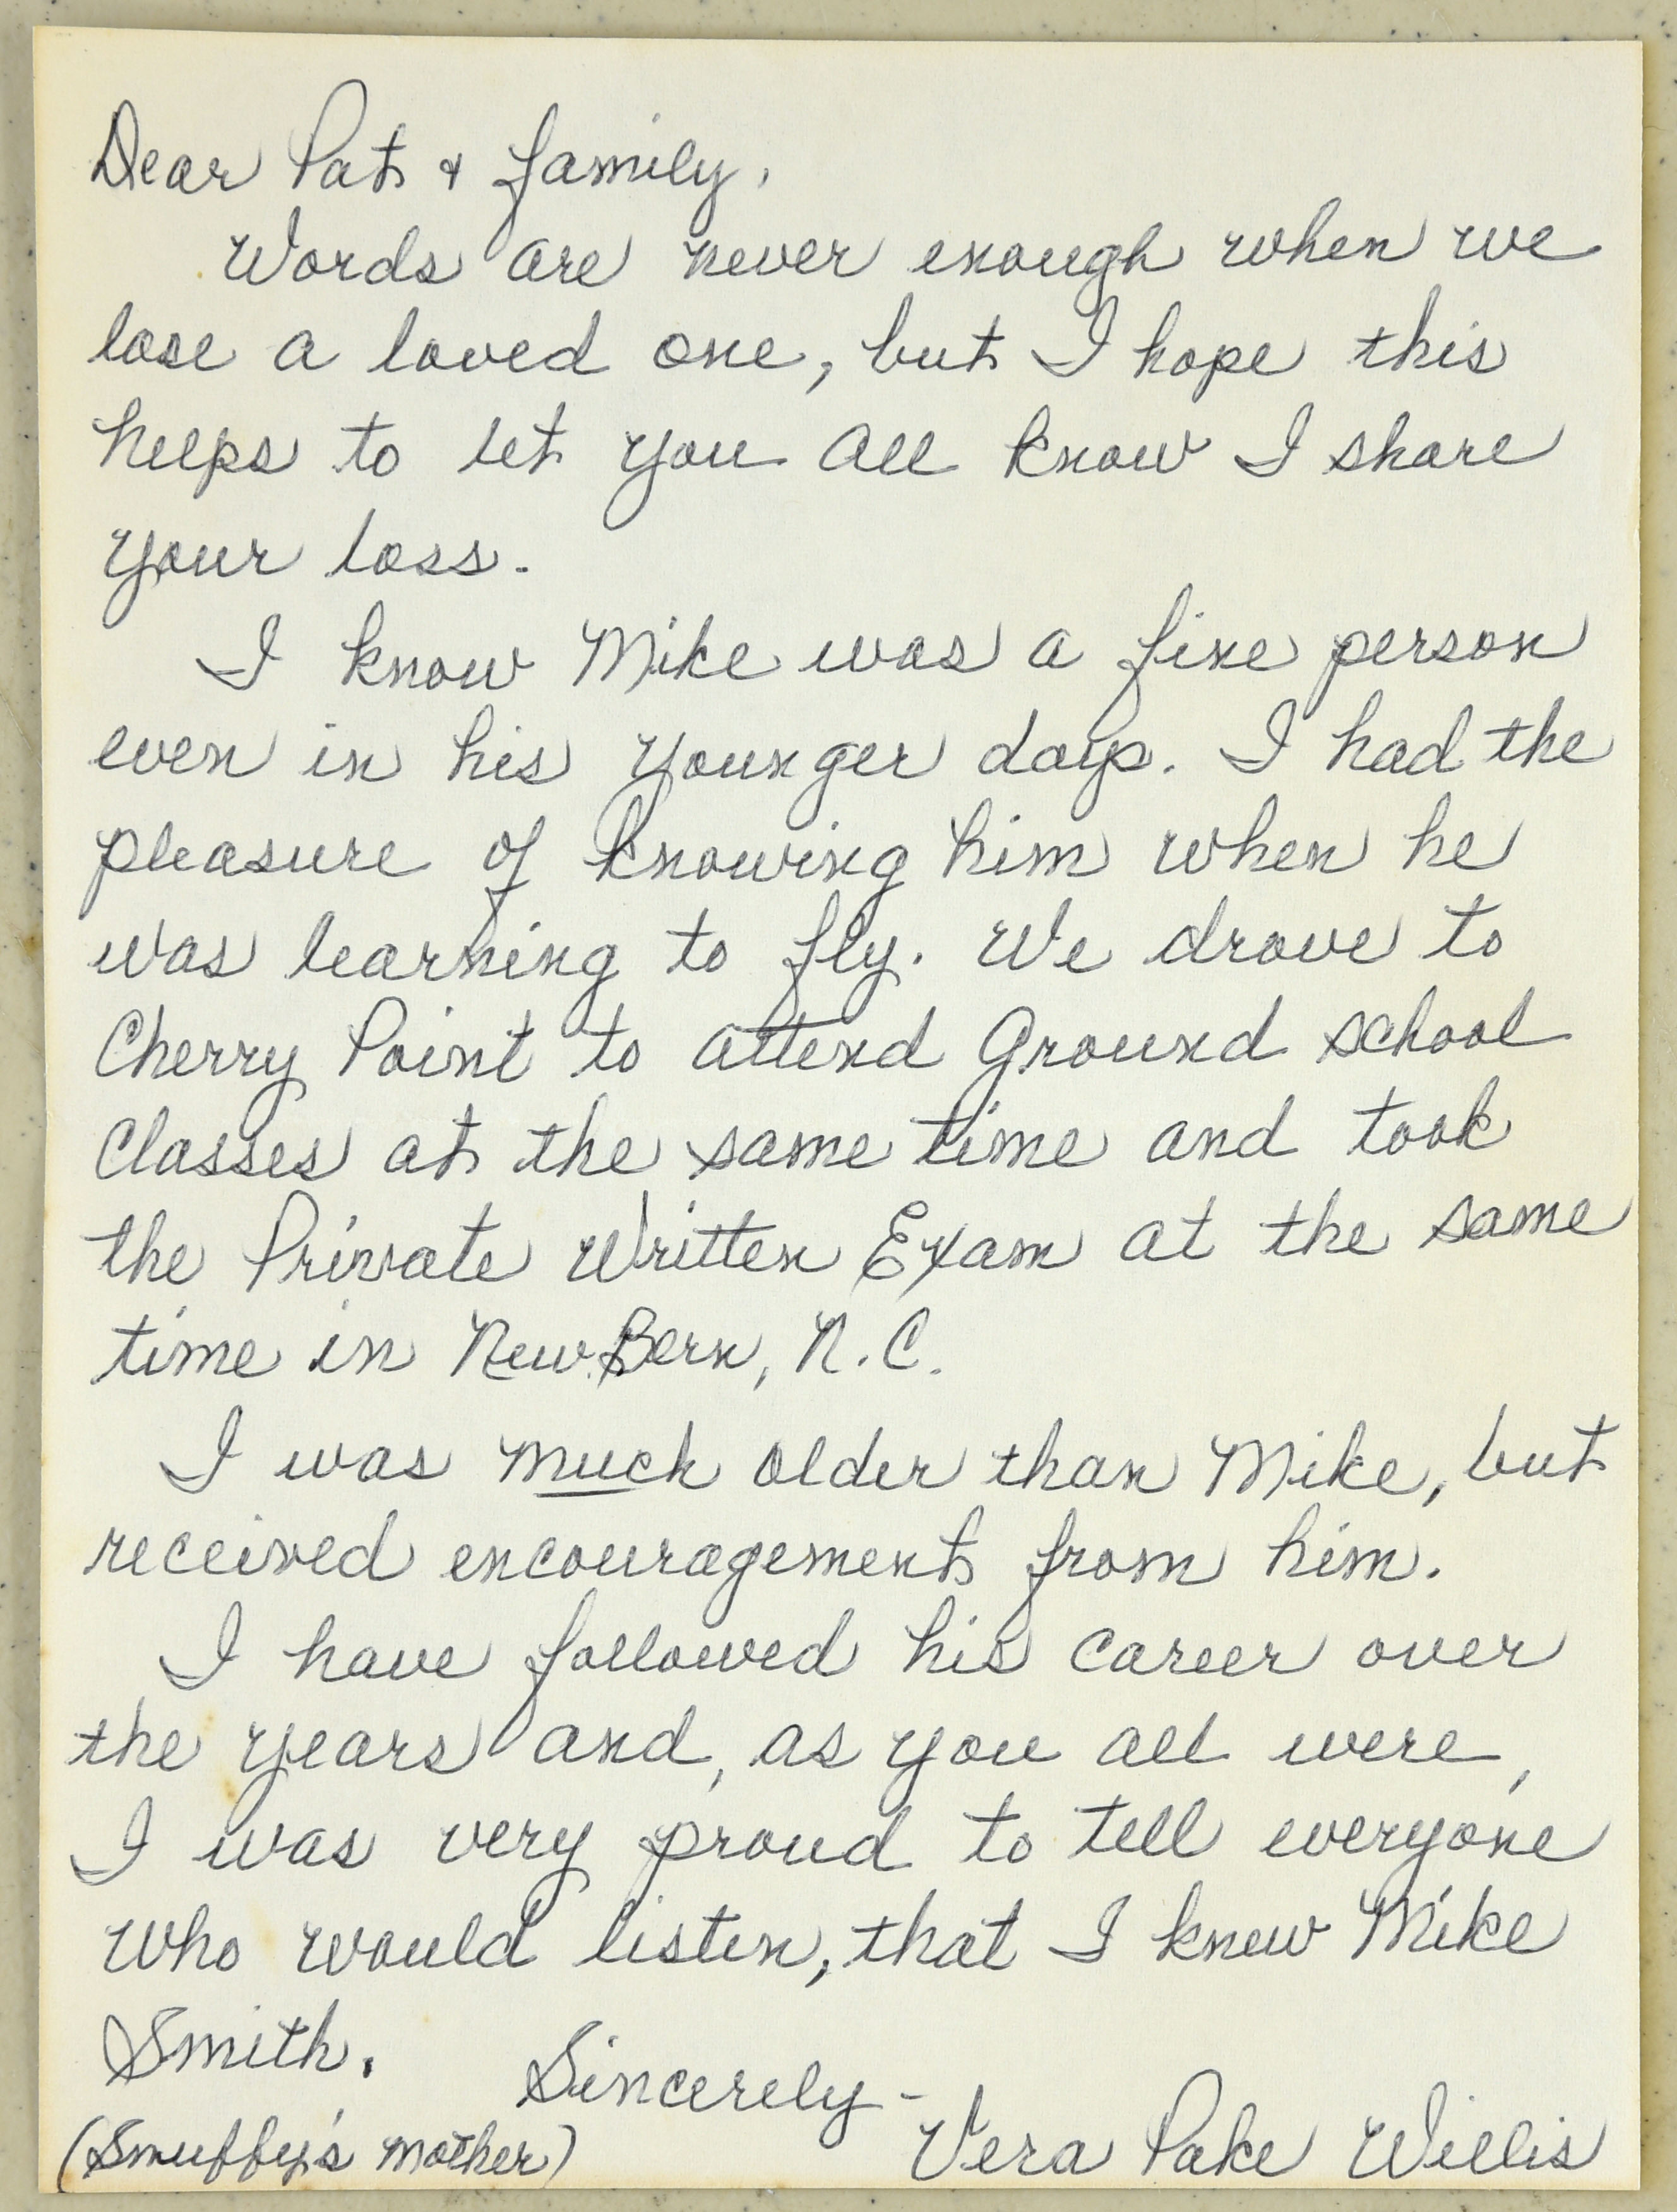 Dear Pat & family,
Words are never enough when we
lose a loved one, but I hope this
helps to let you all know I share
your loss.
I know Mike was a fine person
even in his younger days. I had the
pleasure of knowing him when he
was learning to fly. We drove to
Cherry Point to attend Ground school
Classes at the same time and took
the Private Written Exam at the same
time in New Bern, N.C.
I was much older than Mike, but
received encouragement from him.
I have followed his career over
the years and, as you all were,
I was very proud to tell everyone
who would listen, that I knew Mike
Smith.
Sincerely -
(Smuffy's mother)
Vera Pake Willis